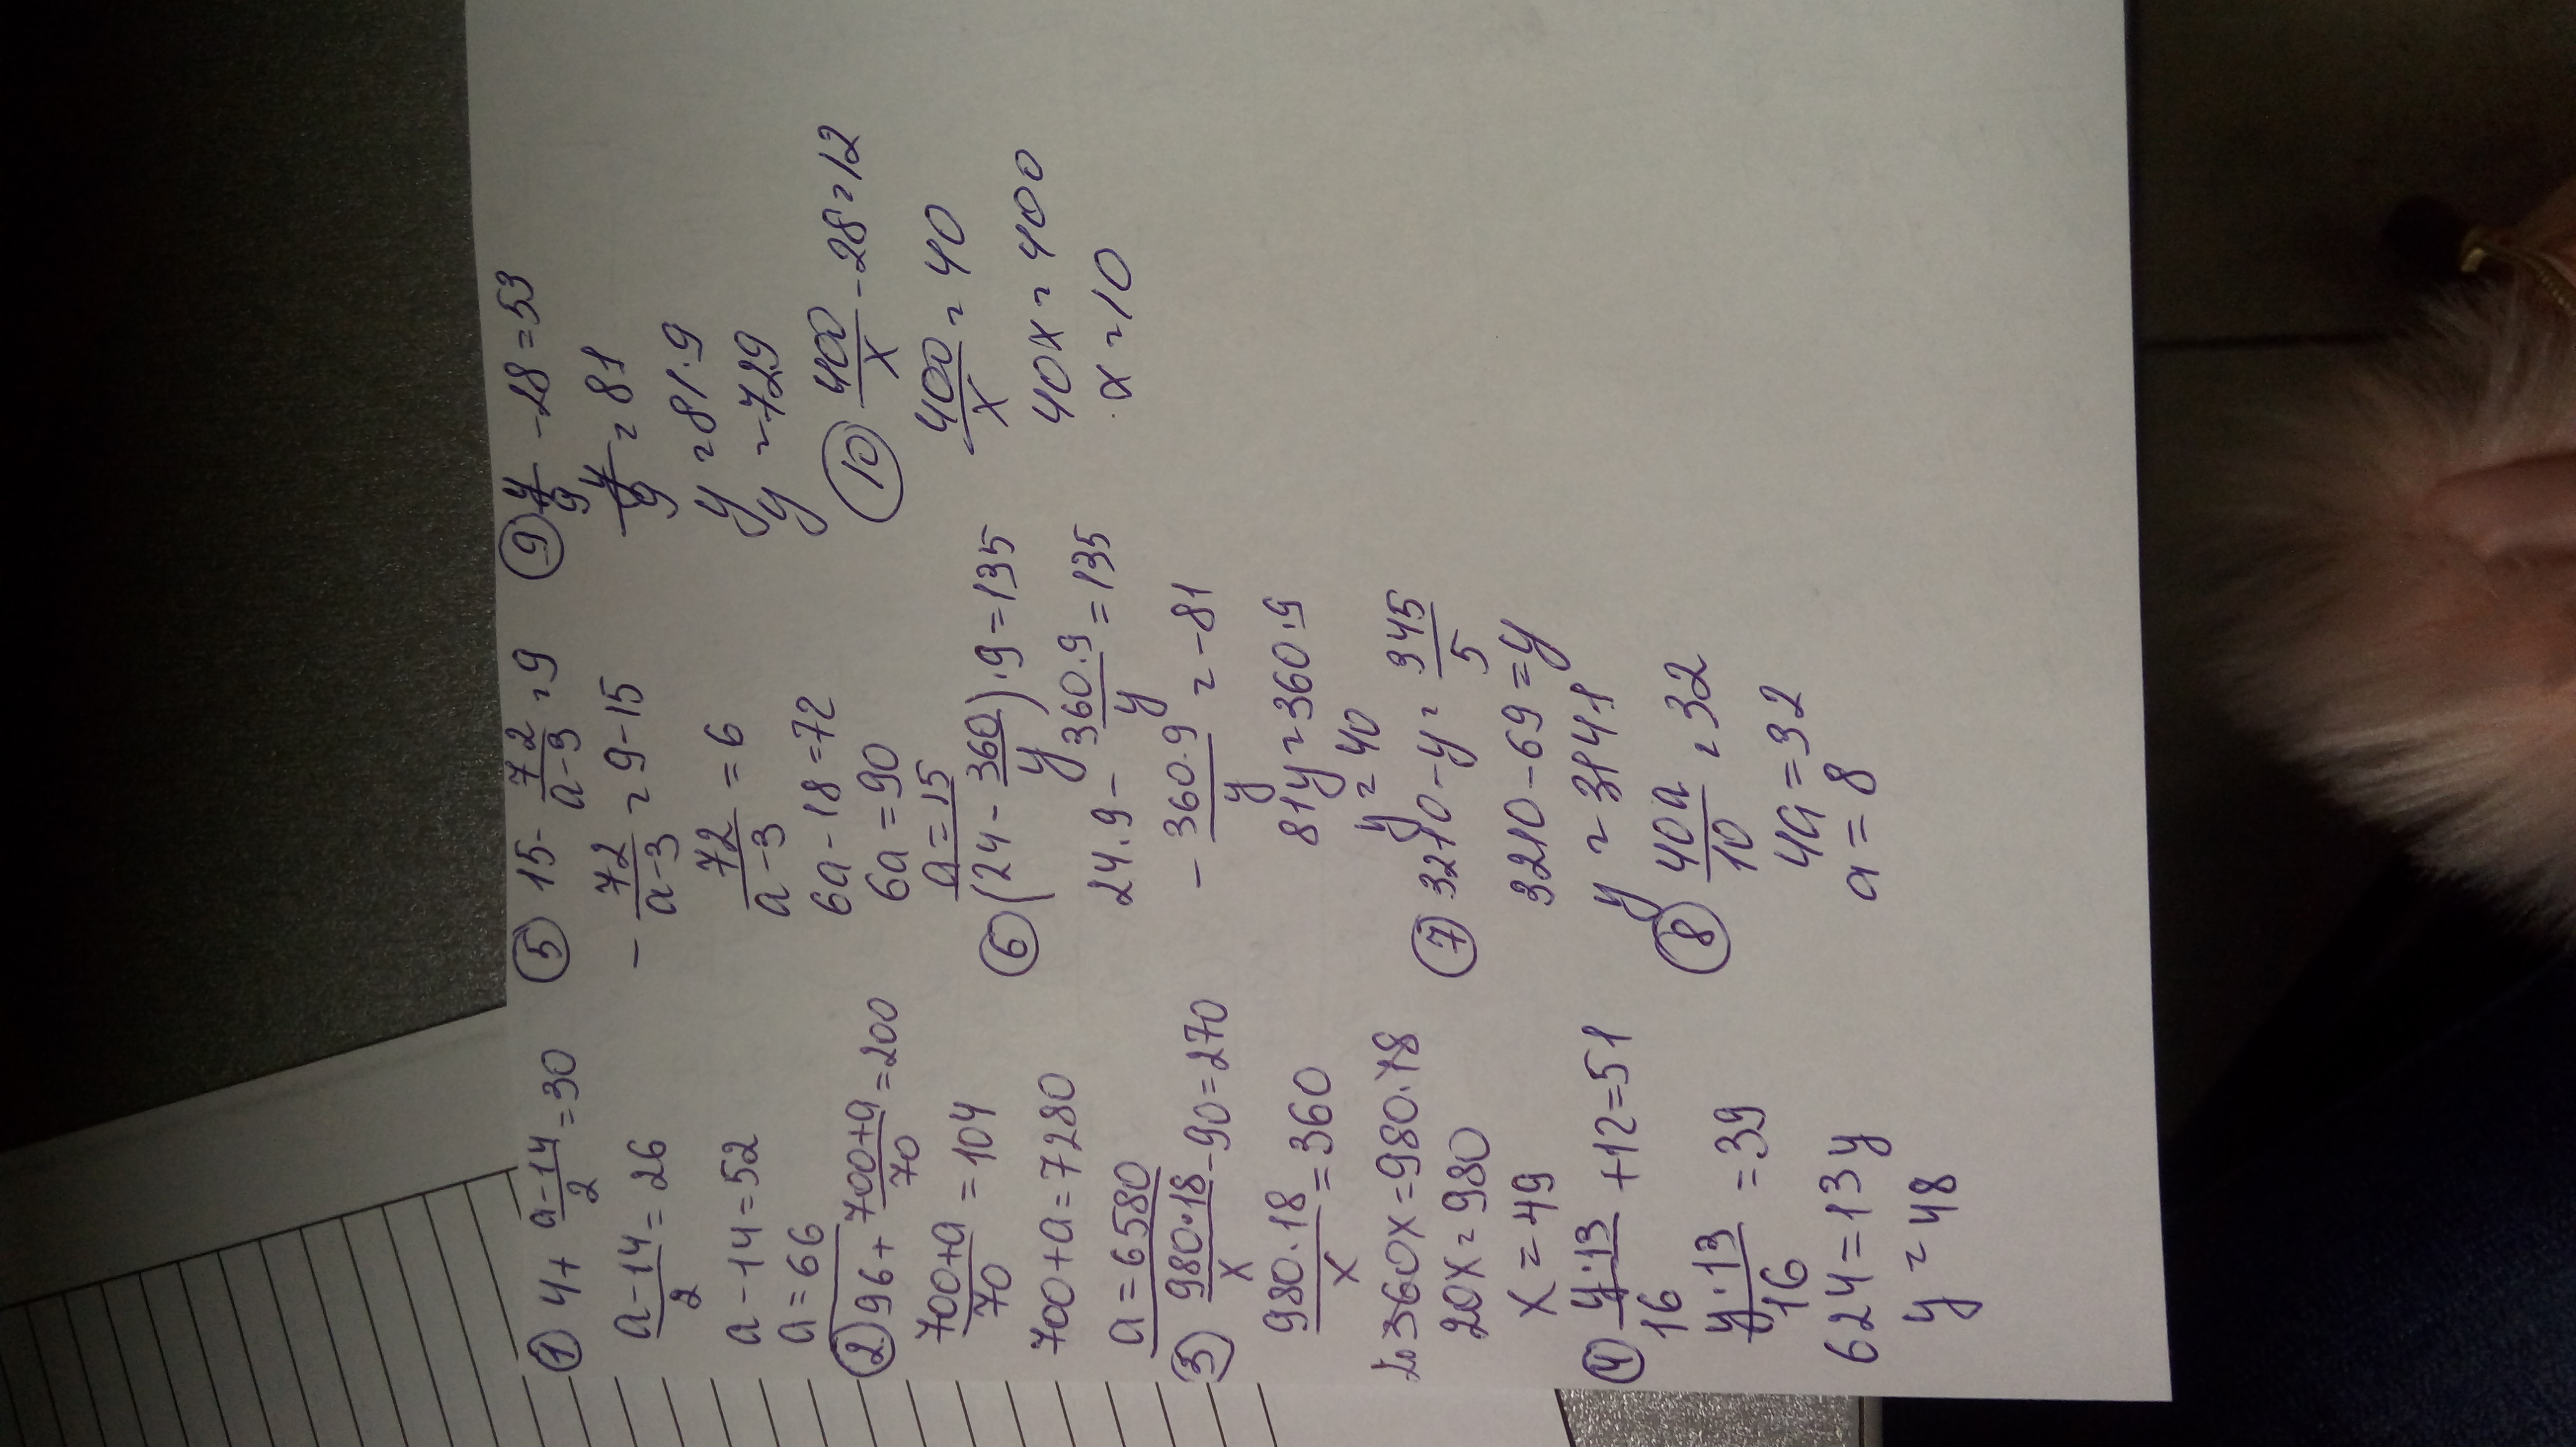 ① 4+ (a-14)/2 = 30
(a-14)/2 = 26
a-14=52
a=66
② 96+ (700+a)/70 = 200
(700+a)/70 = 104
700+a=7280
a=6580
③ (980·18)/x - 90=270
(980·18)/x = 360
20 360x=980·18
20x=980
x=49
④ (y·13)/16 +12=51
(y·13)/16 = 39
624=13y
y=48
⑤ 15- 72/(a-3) =9
- 72/(a-3) =9-15
72/(a-3) =6
6a-18=72
6a=90
a=15
⑥ (24- 360/y)·9=135
24·9- (360·9)/y =135
- (360·9)/y = -81
81y=360·9
y=40
⑦ 3210-y= 345/5
3210-69=y
y=3141
⑧ 40a/10 =32
4a=32
a=8
⑨ y/9 -28=53
y/9 =81
y=81·9
y=729
⑩ 400/x -28=12
400/x =40
40x=400
x=10